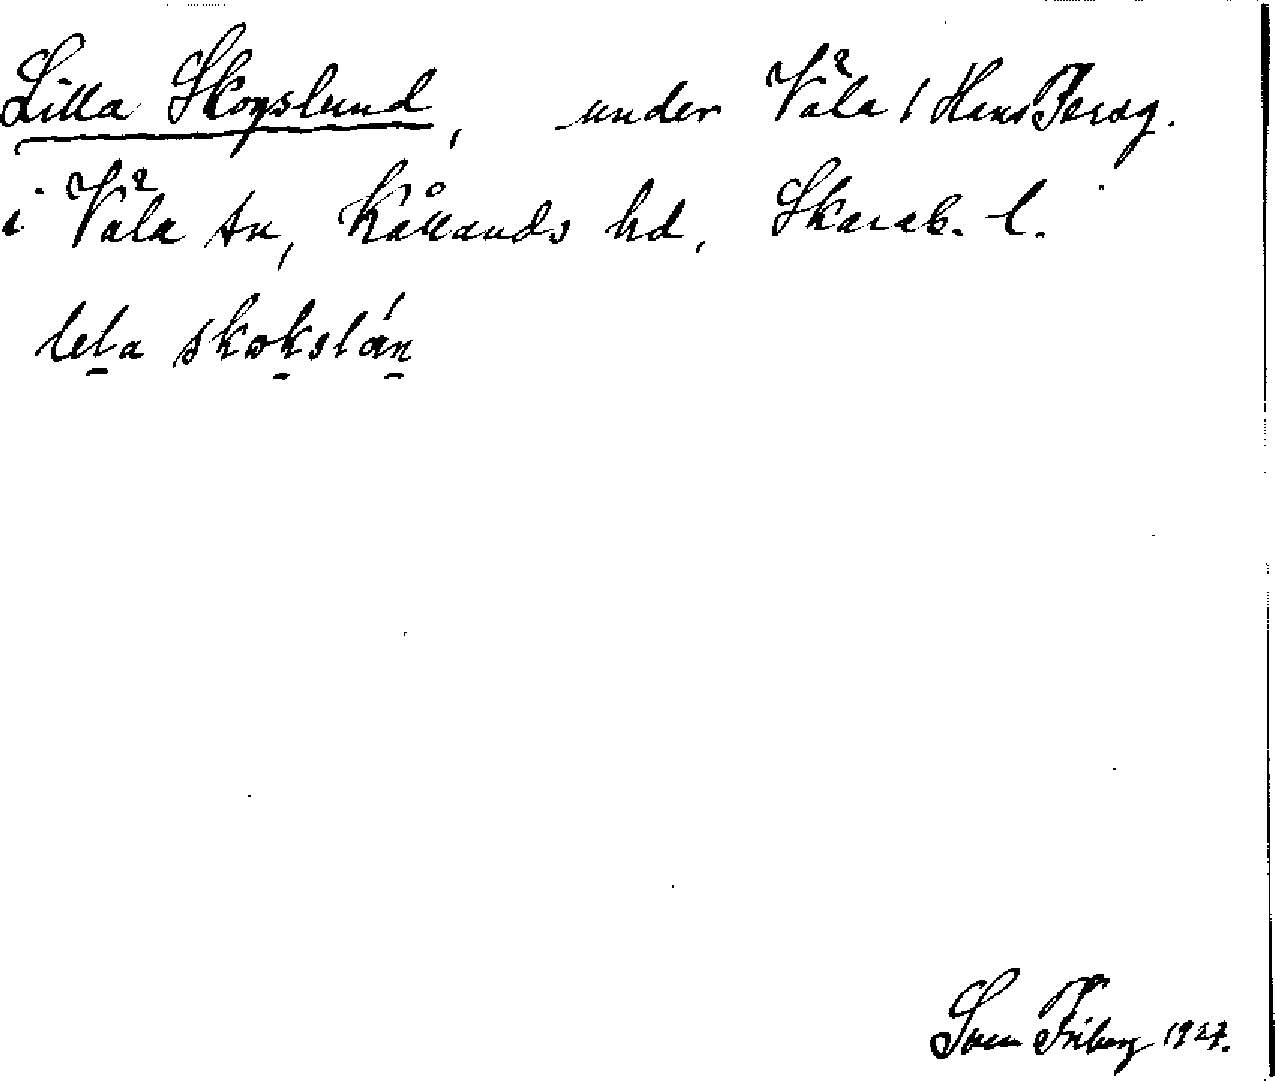 Lilla Skogslund, under Våla 1 Hans Thersg.
i Våla sn, Kållands hd, Skarab. l.
leta skokslán
Sven Friberg 1927.